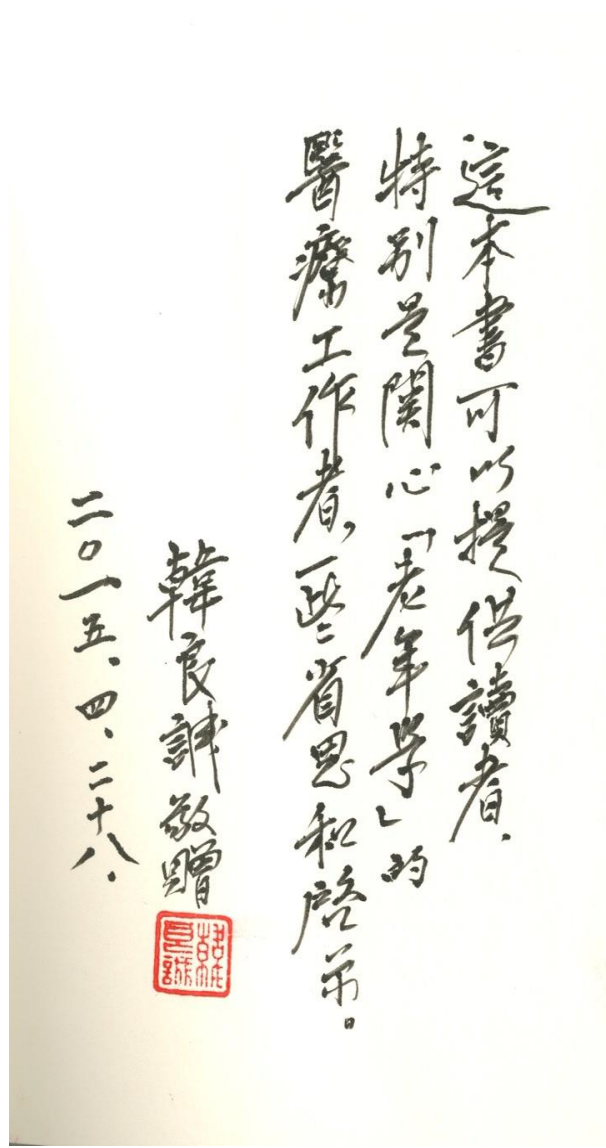 這本書可以提供讀者、
特别是関心「老年学」的
醫療工作者，一些省思和啓示。
韓良誠敬贈
二〇一五、四、二十八.
韓良誠